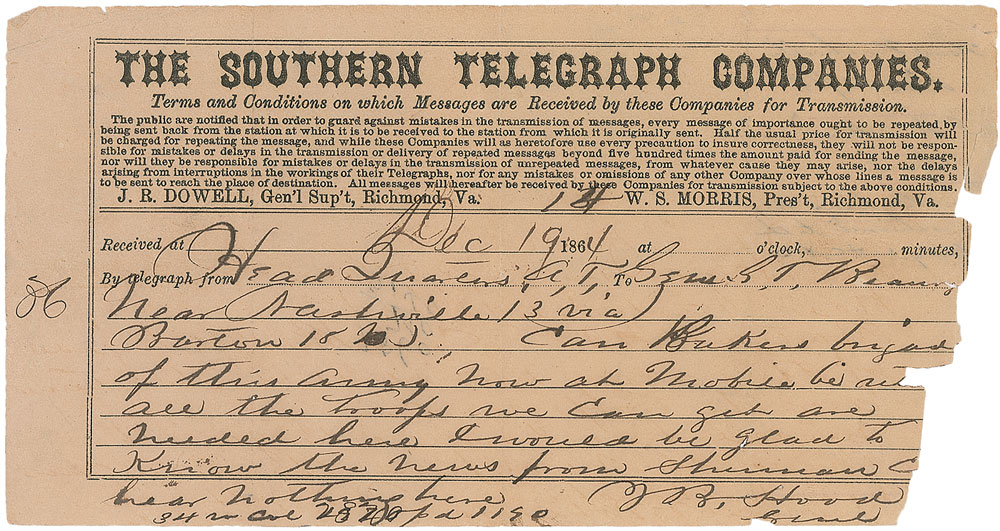 THE SOUTHERN TELEGRAPH COMPANIES.
Terms and Conditions on which Messages are Received by these Companies for Transmission.
The public are notified that in order to guard against mistakes in the transmission of messages, every message of importance ought to be repeated, by
being sent back from the station at which it is to be received to the station from which it is originally sent. Half the usual price for transmission will
be charged for repeating the message, and while these Companies will as heretofore use every precaution to insure correctness, they will not be respon-
sible for mistakes or delays in the transmission or delivery of repeated messages beyond five hundred times the amount paid for sending the message,
nor will they be responsible for mistakes or delays in the transmission of unrepeated messages, from whatever cause they may arise, nor the delays
arising from interruptions in the workings of their Telegraphs, nor for any mistakes or omissions of any other Company over whose lines a message is
to be sent to reach the place of destination. All messages will hereafter be received by these Companies for transmission subject to the above conditions.
J. R. DOWELL, Gen'l Sup't, Richmond, Va. 14 W. S. MORRIS, Pres't, Richmond, Va.
Received at Dec 19 1864 at o'clock, minutes,
By telegraph from Head Quarters A, T, To Genl G. T, Beaureg
Near Nashville 13 via
Barton 18 Can Bakers brigad
of this army now at Mobile be
all the troops we can get are
needed here I would be glad to
Know the news from Sherman
hear nothing here J B, Hood
Genl
34 pd 1190